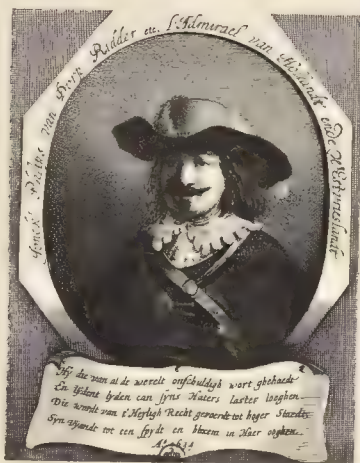 van Dorp Ridder etc. L' Admirael van Hollandt ende Westvrieslandt
Hy die van al de werelt onschuldigh wort ghehaedt
En lydent lyden can syns Haters laster loeghen
Die wordt van t' Heyligh Recht gevoerdt tot hoger Staedt
Syn vyandt tot een spydt en bloem in Haer ooghen
Aº 1634